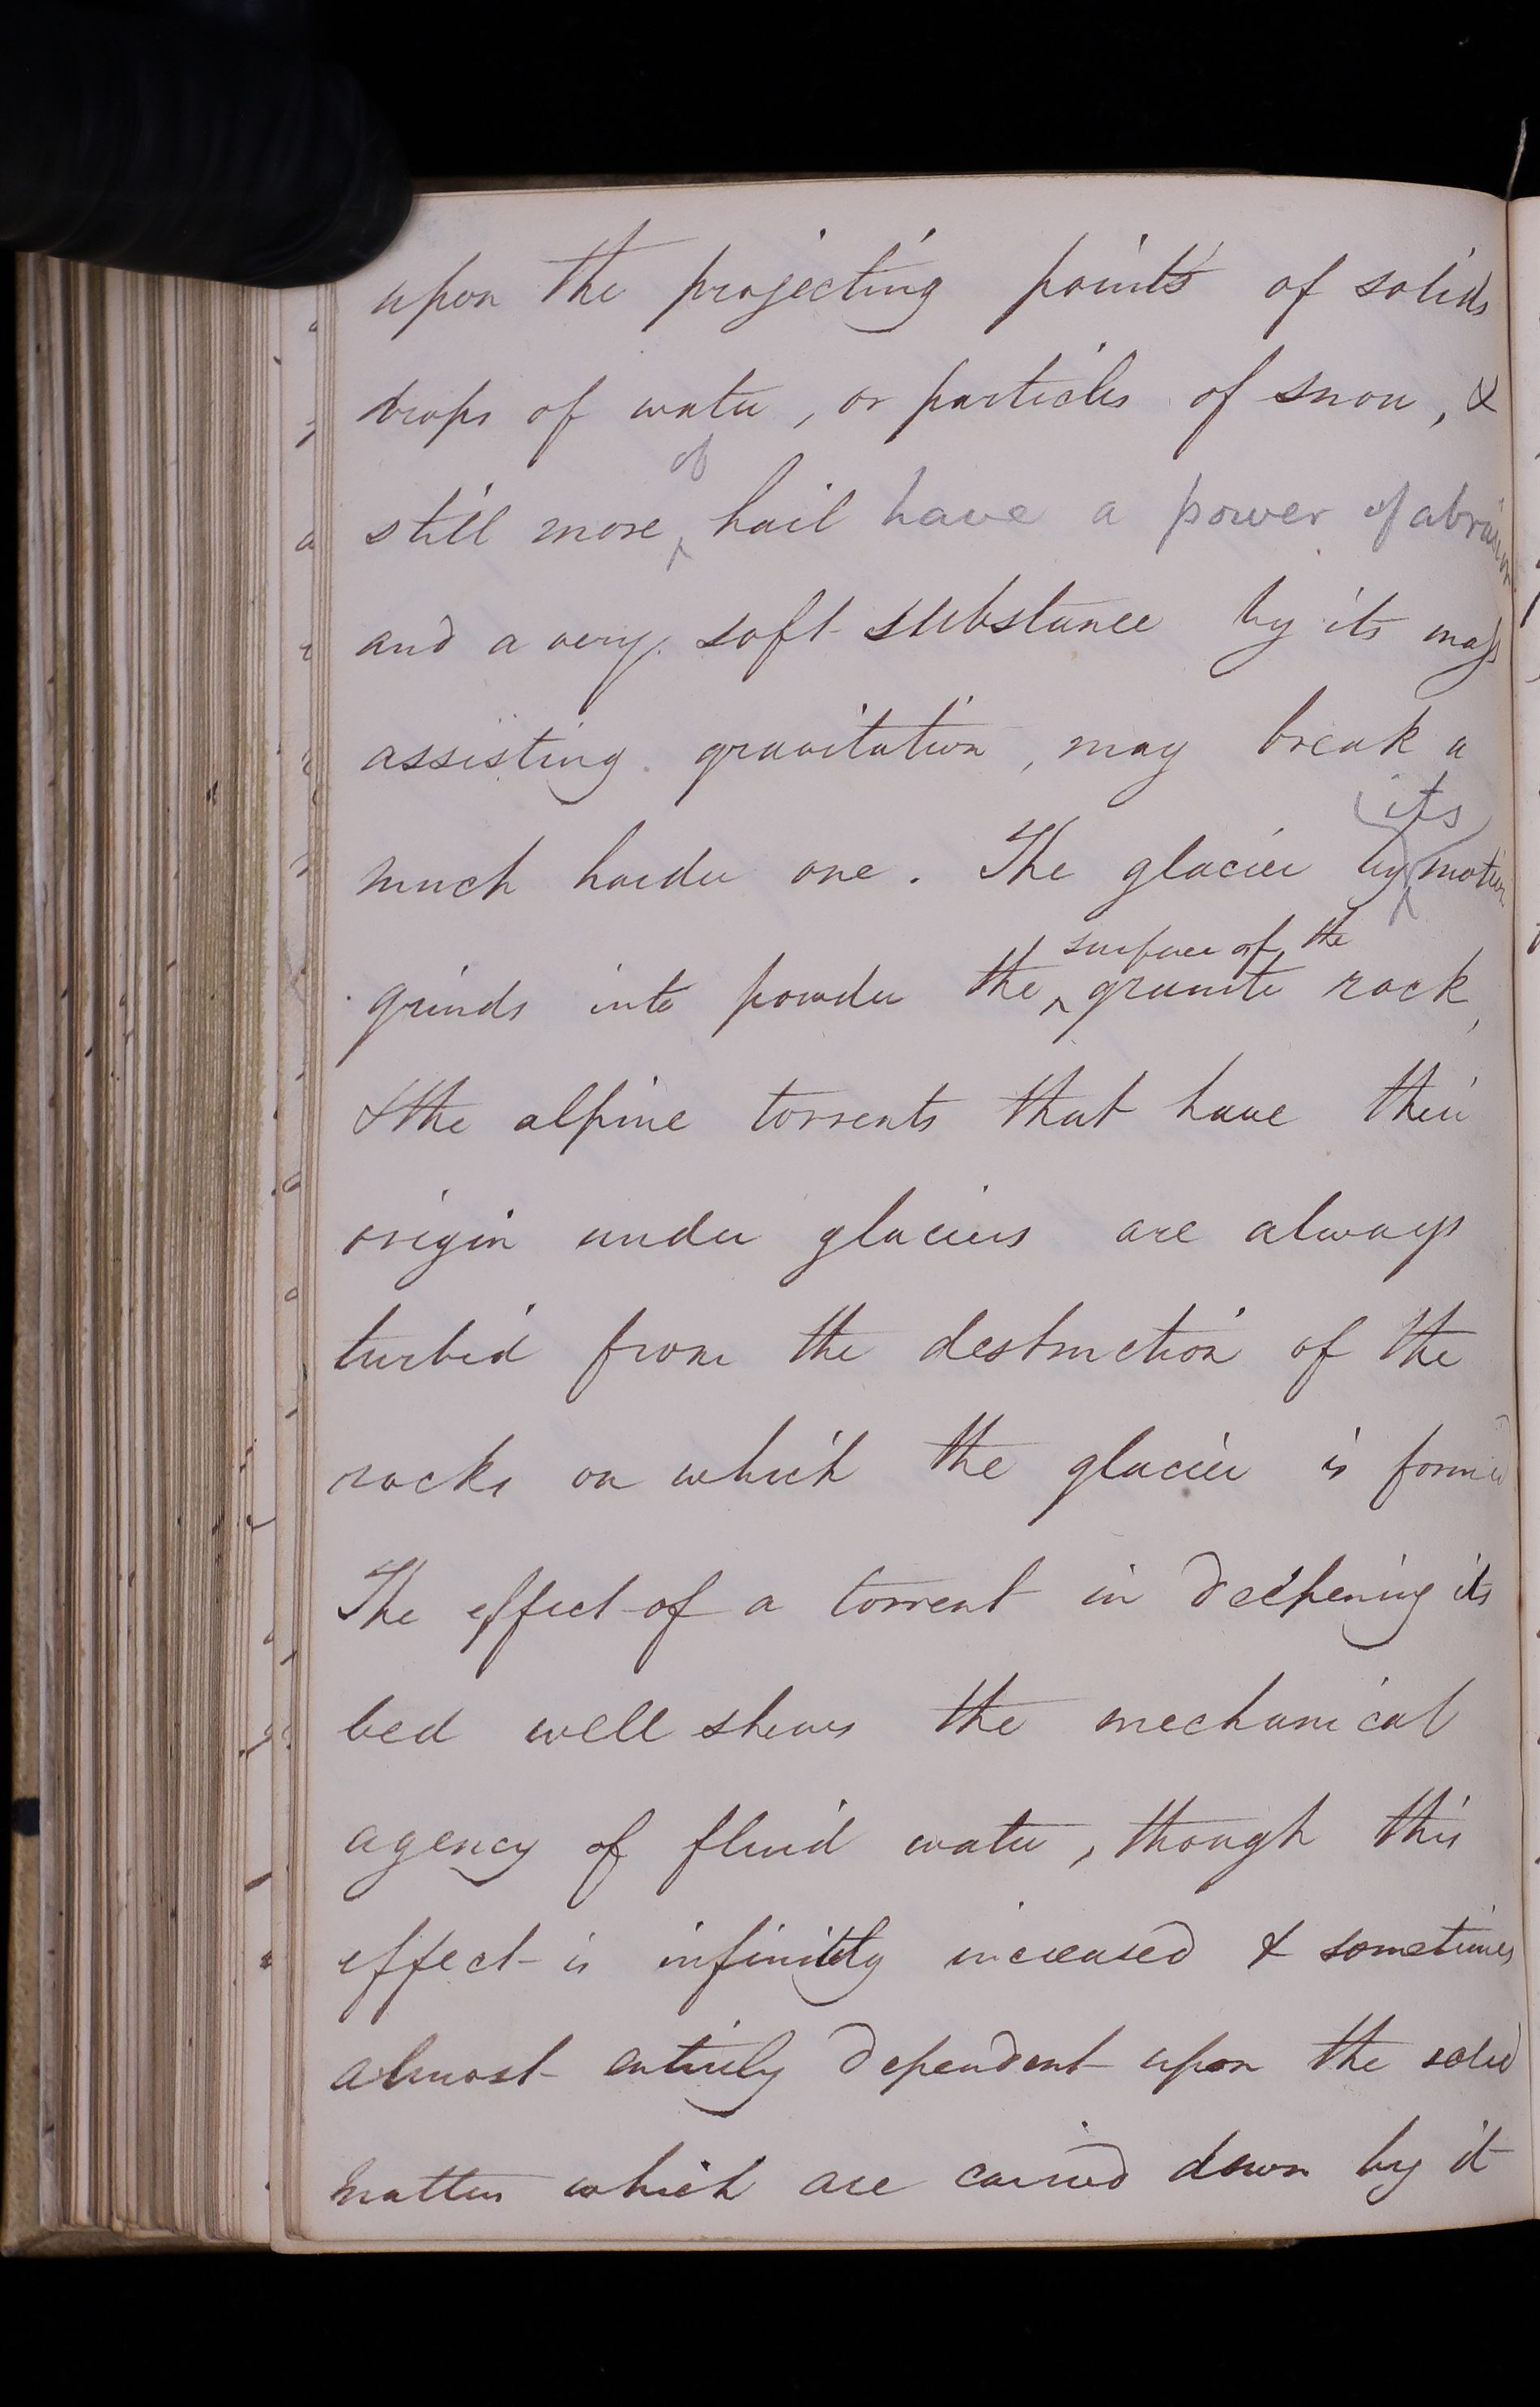 upon the projecting points of solids
drops of water, or particles of snow, &
of
still more hail have a power of abrasion
and a very soft substance by its mass
assisting gravitation, may break a
its
much harder one. The glacier by motion
surface of the
grinds into powder the granite rock,
& the alpine torrents that have their
origin under glaciers are always
turbid from the destruction of the
rocks on which the glacier is formed
The effect of a torrent in deepening its
bed well shews the mechanical
agency of fluid water, though this
effect is infinitely increased & sometimes
almost entirely dependent upon the solid
matters which are carried down by it